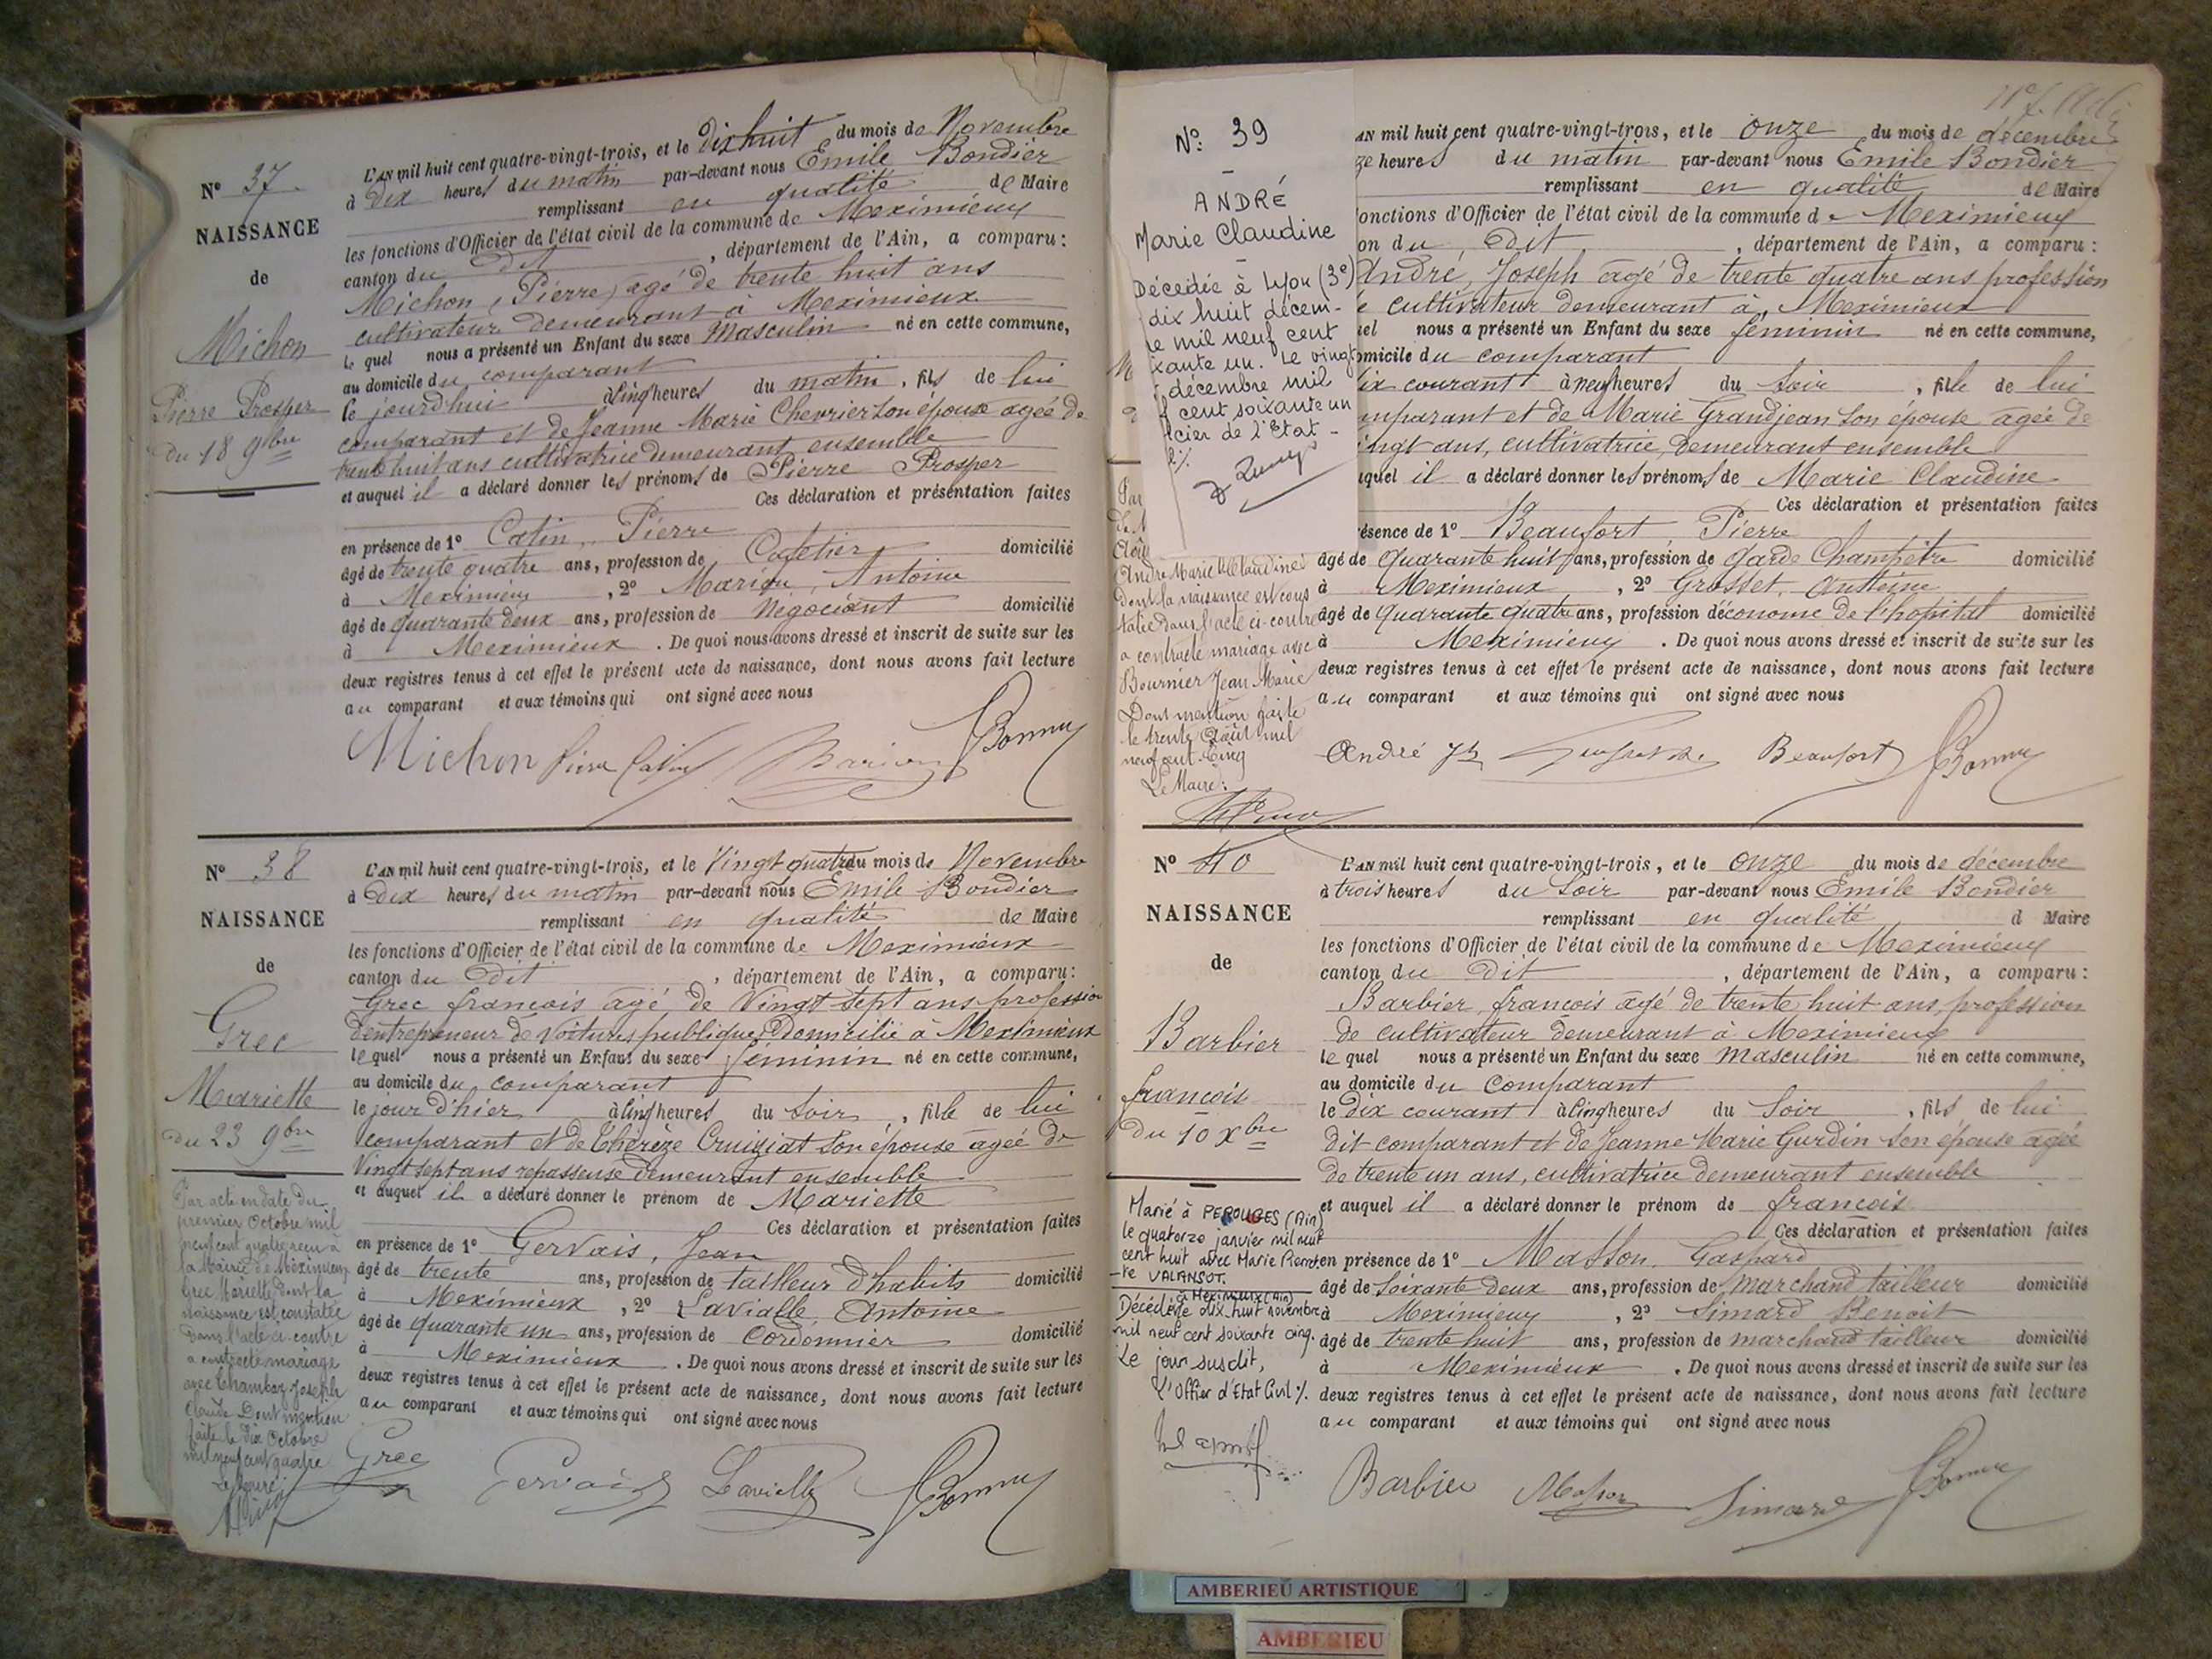 N° 37
NAISSANCE
de
Michon
Pierre Prosper
du 18 9bre
L'AN mil huit cent quatre-vingt-trois, et le Dix huit du mois de Novembre
à Dix heures du matin par-devant nous Emile Bondier
remplissant en qualité de Maire
les fonctions d'Officier de l'état civil de la commune de Meximieux
canton du Dit, département de l'Ain, a comparu:
Michon, Pierre, agé de trente huit ans
cultivateur demeurant à Meximieux
le quel nous a présenté un Enfant du sexe Masculin né en cette commune,
au domicile du comparant
le jourdhui à Cinq heures du matin, fils de lui
comparant et de Jeanne Marie Chevrier son épouse agée de
trente huit ans cultivatrice demeurant ensemble
et auquel il a déclaré donner les prénoms de Pierre Prosper
Ces déclaration et présentation faites
en présence de 1° Catin, Pierre
âgé de trente quatre ans, profession de Cafetier domicilié
à Meximieux, 2° Marion, Antoine
âgé de quarante deux ans, profession de Négociant domicilié
à Meximieux. De quoi nous avons dressé et inscrit de suite sur les
deux registres tenus à cet effet le présent acte de naissance, dont nous avons fait lecture
au comparant et aux témoins qui ont signé avec nous
Michon Pierre Catin Marion
N° 38
NAISSANCE
de
Grec
Mariette
du 23 9bre
Par acte en date du
premier Octobre mil
neuf cent quatre reçu à
la Mairie de Meximieux
Grec Mariette dont la
naissance est constatée
dans l'acte ci-contre
a contracté mariage
avec Chambaz Joseph
Claude Dont mention
faite le dix Octobre
mil neuf cent quatre
L'AN mil huit cent quatre-vingt-trois, et le Vingt quatre du mois de Novembre
à Dix heures du matin par-devant nous Emile Bondier
remplissant en qualité de Maire
les fonctions d'Officier de l'état civil de la commune de Meximieux
canton du Dit, département de l'Ain, a comparu:
Grec francois agé de Vingt sept ans, profession
d'entrepreneur de voitures publiques, Domicilié à Meximieux
le quel nous a présenté un Enfant du sexe féminin né en cette commune,
au domicile du comparant
le jour d'hier à Cinq heures du soir, fille de lui
comparant et de Thérèze Cruiziat son épouse agée de
Vingt sept ans repasseuse demeurant ensemble
et auquel il a déclaré donner le prénom de Mariette
Ces déclaration et présentation faites
en présence de 1° Gervais, Jean
âgé de trente ans, profession de tailleur d'habits domicilié
à Meximieux, 2° Lavialle, Antoine
âgé de quarante un ans, profession de Cordonnier domicilié
à Meximieux. De quoi nous avons dressé et inscrit de suite sur les
deux registres tenus à cet effet le présent acte de naissance, dont nous avons fait lecture
au comparant et aux témoins qui ont signé avec nous
Grec Gervais Lavialle
N° 39
ANDRÉ
Marie Claudine
Décédée à Lyon (3e)
dix huit décem-
re mil neuf cent
xante un. Le vingt
décembre mil
cent soixante un
icier de l'Etat
André Marie Claudine
dont la naissance est cons
tatée dans l'acte ci-contre
a contracté mariage avec
Bournier Jean Marie
Dont mention faite
le trente Août mil
neuf cent Cinq
Le Maire:
AN mil huit cent quatre-vingt-trois, et le onze du mois de décembre
ze heures du matin par-devant nous Emile Bondier
remplissant en qualité de Maire
onctions d'Officier de l'état civil de la commune de Meximieux
on du Dit, département de l'Ain, a comparu:
André, Joseph agé de trente quatre ans profession
e cultivateur demeurant à Meximieux
uel nous a présenté un Enfant du sexe féminin né en cette commune,
omicile du comparant
ix courant à neuf heures du soir, fille de lui
mparant et de Marie Grandjean son épouse agée de
ingt ans, cultivatrice, demeurant ensemble
uquel il a déclaré donner les prénoms de Marie Claudine
Ces déclaration et présentation faites
résence de 1° Beaufort, Pierre
âgé de quarante huit ans, profession de garde Champêtre domicilié
à Meximieux, 2° Grosset, Antoine
âgé de quarante quatre ans, profession d'économe de l'hopital domicilié
à Meximieux. De quoi nous avons dressé et inscrit de suite sur les
deux registres tenus à cet effet le présent acte de naissance, dont nous avons fait lecture
au comparant et aux témoins qui ont signé avec nous
André Beaufort
N° 40
NAISSANCE
de
Barbier
francois
Du 10 Xbre
Marié à PEROUGES (Ain)
le quatorze janvier mil neuf
cent huit avec Marie Pierret-
te VALANSOT.
à Meximieux (Ain)
Décédé le dix huit novembre
mil neuf cent soixante cinq.
Le jour susdit,
L'Officier d'Etat Civil %.
L'AN mil huit cent quatre-vingt-trois, et le onze du mois de décembre
à trois heures du soir par-devant nous Emile Bondier
remplissant en qualité d Maire
les fonctions d'Officier de l'état civil de la commune de Meximieux
canton du Dit, département de l'Ain, a comparu:
Barbier, francois agé de trente huit ans, profession
de cultivateur demeurant à Meximieux
le quel nous a présenté un Enfant du sexe masculin né en cette commune,
au domicile du comparant
le dix courant à Cinq heures du soir, fils de lui
dit comparant et de Jeanne Marie Gurdin son épouse agée
de trente un ans, cultivatrice demeurant ensemble
et auquel il a déclaré donner le prénom de francois
Ces déclaration et présentation faites
en présence de 1° Masson, Gaspard
âgé de Soixante deux ans, profession de marchand tailleur domicilié
à Meximieux, 2° Simard Benoit
âgé de trente huit ans, profession de marchand tailleur domicilié
à Meximieux. De quoi nous avons dressé et inscrit de suite sur les
deux registres tenus à cet effet le présent acte de naissance, dont nous avons fait lecture
au comparant et aux témoins qui ont signé avec nous
Barbier Masson Simard
AMBERIEU ARTISTIQUE
AMBERIEU